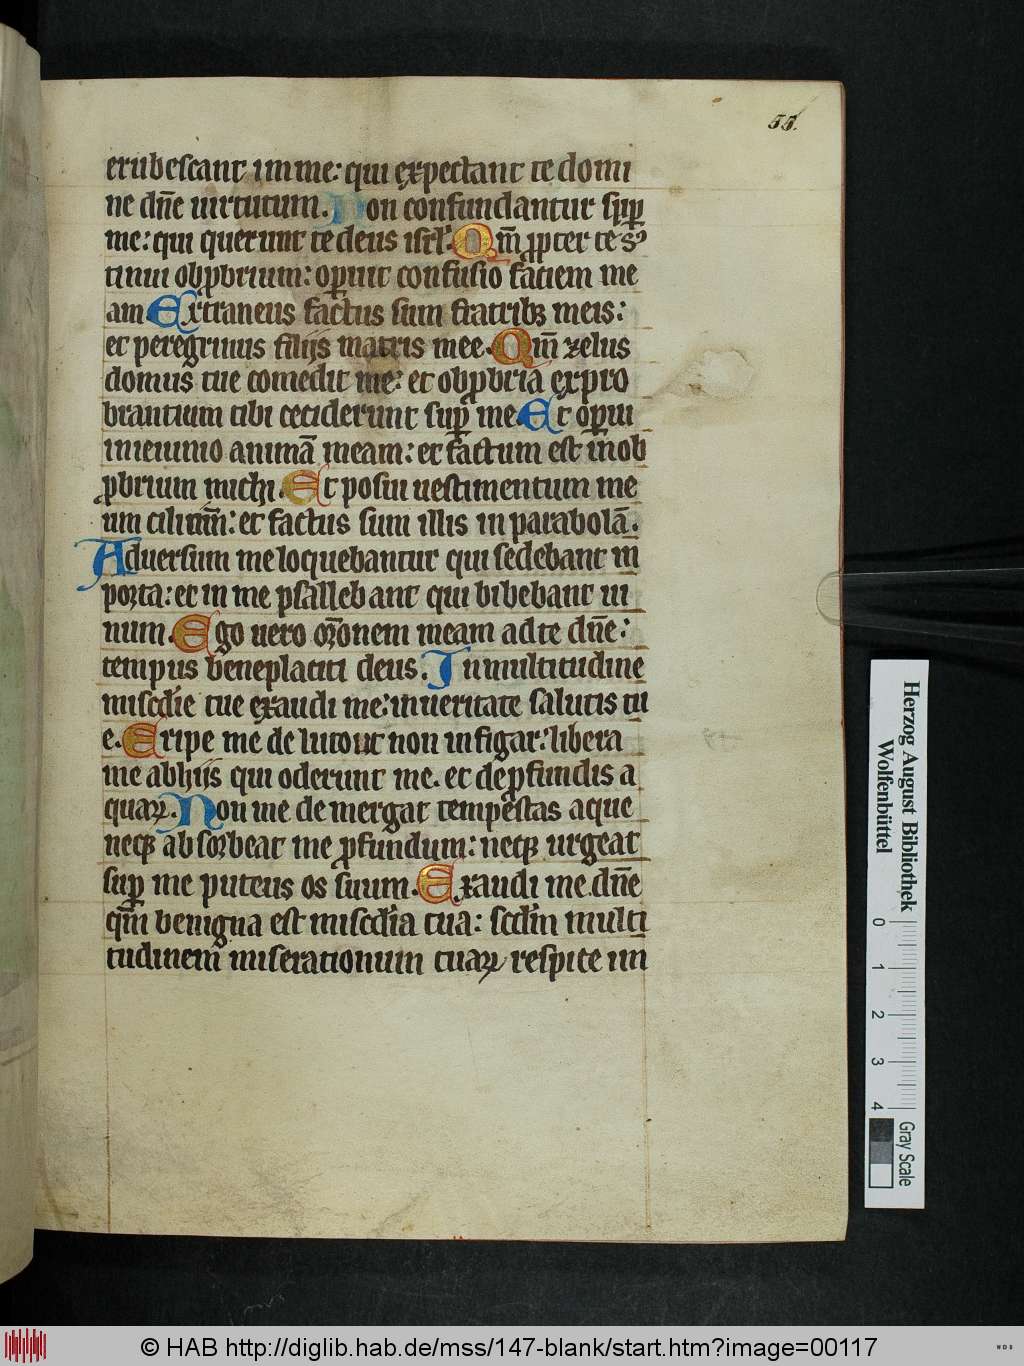 55.
erubescant in me: qui expectant te domi
ne dn̄e uirtutum. Non confundantur sup̱
me: qui querunt te deus isrl̓. Qm̄ ꝓpter te sꝰ
tinui obꝓbrium: oꝑuit confusio faciem me
am Extraneus factus sum fratribꝫ meis:
et peregrinus filijs matris mee. Qm̄ zelus
domus tue comedit me: et obꝓbria expro
brantium tibi ceciderunt suꝑ me. Et oꝑui
in ieiunio animā meam: et factum est in ob
ꝓbrium michi. Et posui uestimentum me
um ciliciū: et factus sum illis in parabolā.
Aduersum me loquebantur qui sedebant in
porta: et in me psallebant qui bibebant ui
num. Ego uero or̄onem meam ad te dn̄e:
tempus beneplaciti deus. In multitudine
miscd̓ie tue exaudi me: in ueritate salutis tu
e. Eripe me de luto ut non infigar: libera
me ab hijs qui oderunt me. et de ꝓfundis a
quaꝝ. Non me demergat tempestas aque
necꝫ absorbeat me ꝓfundum: necꝫ urgeat
suꝑ me puteus os suum. Exaudi me dn̄e
qm̄ benigna est miscd̓ia tua: scd̓m multi
tudinem miserationum tuaꝝ respice in
Herzog August Bibliothek
Wolfenbüttel
0 1 2 3 4
Gray Scale
© HAB http://diglib.hab.de/mss/147-blank/start.htm?image=00117